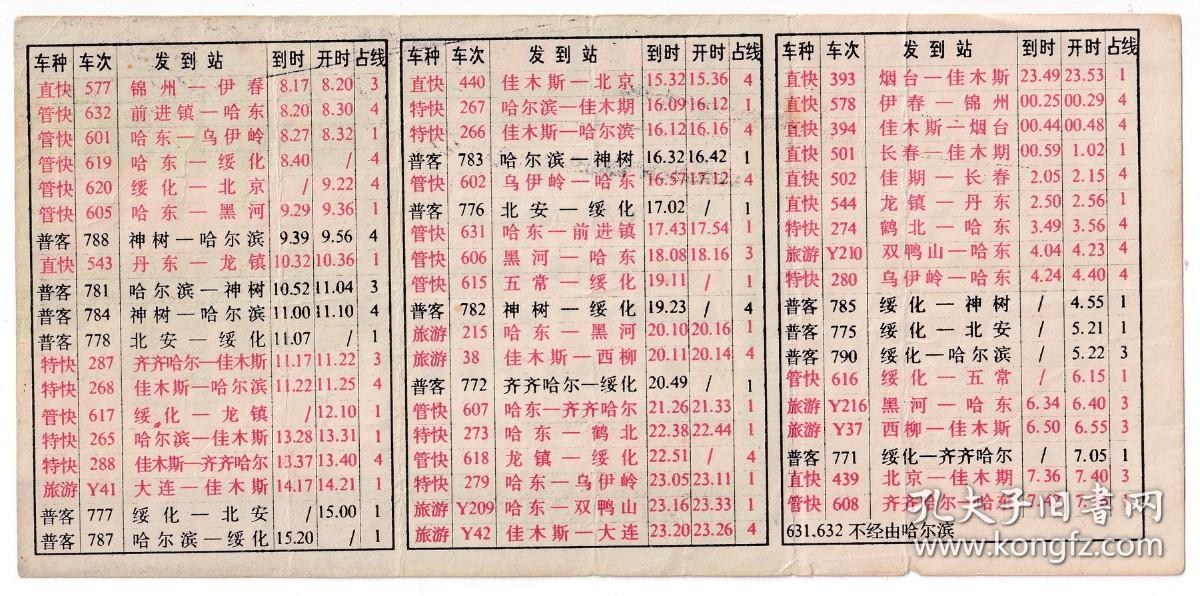 车种 车次 发到站 到时 开时 占线
直快 577 锦州—伊春 8.17 8.20 3
管快 632 前进镇—哈东 8.20 8.30 4
管快 601 哈东—乌伊岭 8.27 8.32 1
管快 619 哈东—绥化 8.40 / 4
管快 620 绥化—北京 / 9.22 4
管快 605 哈东—黑河 9.29 9.36 1
普客 788 神树—哈尔滨 9.39 9.56 4
直快 543 丹东—龙镇 10.32 10.36 1
普客 781 哈尔滨—神树 10.52 11.04 3
普客 784 神树—哈尔滨 11.00 11.10 4
普客 778 北安—绥化 11.07 / 1
特快 287 齐齐哈尔—佳木斯 11.17 11.22 3
特快 268 佳木斯—哈尔滨 11.22 11.25 4
管快 617 绥化—龙镇 / 12.10 1
特快 265 哈尔滨—佳木斯 13.28 13.31 1
特快 288 佳木斯—齐齐哈尔 13.37 13.40 4
旅游 Y41 大连—佳木斯 14.17 14.21 1
普客 777 绥化—北安 / 15.00 1
普客 787 哈尔滨—绥化 15.20 / 1
车种 车次 发到站 到时 开时 占线
直快 440 佳木斯—北京 15.32 15.36 4
特快 267 哈尔滨—佳木期 16.09 16.12 1
特快 266 佳木斯—哈尔滨 16.12 16.16 4
普客 783 哈尔滨—神树 16.32 16.42 1
管快 602 乌伊岭—哈东 16.57 17.12 4
普客 776 北安—绥化 17.02 / 1
管快 631 哈东—前进镇 17.43 17.54 1
管快 606 黑河—哈东 18.08 18.16 3
管快 615 五常—绥化 19.11 / 1
普客 782 神树—绥化 19.23 / 4
旅游 215 哈东—黑河 20.10 20.16 1
旅游 38 佳木斯—西柳 20.11 20.14 4
普客 772 齐齐哈尔—绥化 20.49 / 1
管快 607 哈东—齐齐哈尔 21.26 21.33 1
特快 273 哈东—鹤北 22.38 22.44 1
管快 618 龙镇—绥化 22.51 / 4
特快 279 哈东—乌伊岭 23.05 23.11 1
旅游 Y209 哈东—双鸭山 23.16 23.33 1
旅游 Y42 佳木斯—大连 23.20 23.26 4
车种 车次 发到站 到时 开时 占线
直快 393 烟台—佳木斯 23.49 23.53 1
直快 578 伊春—锦州 00.25 00.29 4
直快 394 佳木斯—烟台 00.44 00.48 4
直快 501 长春—佳木期 00.59 1.02 1
直快 502 佳期—长春 2.05 2.15 4
直快 544 龙镇—丹东 2.50 2.56 1
特快 274 鹤北—哈东 3.49 3.56 4
旅游 Y210 双鸭山—哈东 4.04 4.23 4
特快 280 乌伊岭—哈东 4.24 4.40 4
普客 785 绥化—神树 / 4.55 1
普客 775 绥化—北安 / 5.21 1
普客 790 绥化—哈尔滨 / 5.22 3
管快 616 绥化—五常 / 6.15 1
旅游 Y216 黑河—哈东 6.34 6.40 3
旅游 Y37 西柳—佳木斯 6.50 6.55 3
普客 771 绥化—齐齐哈尔 / 7.05 1
直快 439 北京—佳木期 7.36 7.40 3
管快 608 齐齐哈尔—哈东
631.632 不经由哈尔滨
孔夫子旧书网
www.kongfz.com